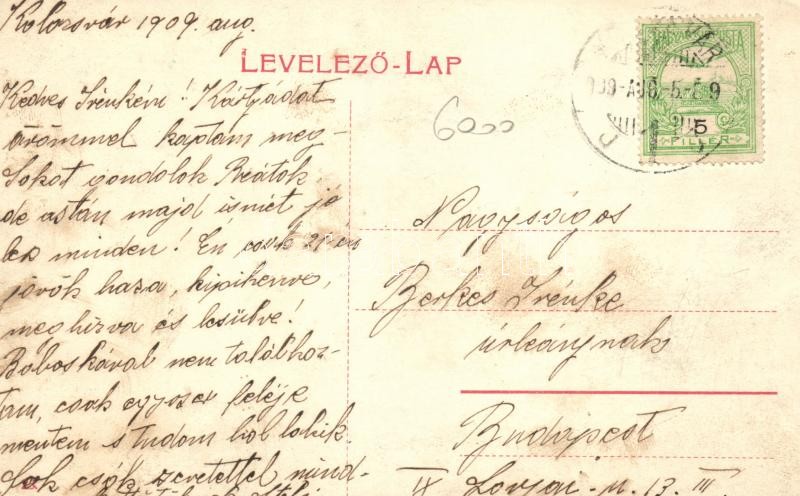 Kolozsvár 1909. aug.
LEVELEZŐ-LAP
Kedves Irénkém! Kártyádat
örömmel kaptam meg-
Sokat gondolok Reátok
de aztán majd ismét jó
lesz minden! Én csak 25-én
jövök haza, kipihenve,
meghízva és lesülve!
Böboskával nem találkoz-
tam, csak egyszer feléje
mentem s tudom hol lakik.
Sok csók szeretettel mind-
6000
MAGYAR POSTA
909-AUG.-5.-
5
FILLÉR
Nagyságos
Berkes Irénke
úrleánynak
Budapest
IX Lónyai-u. 13. III